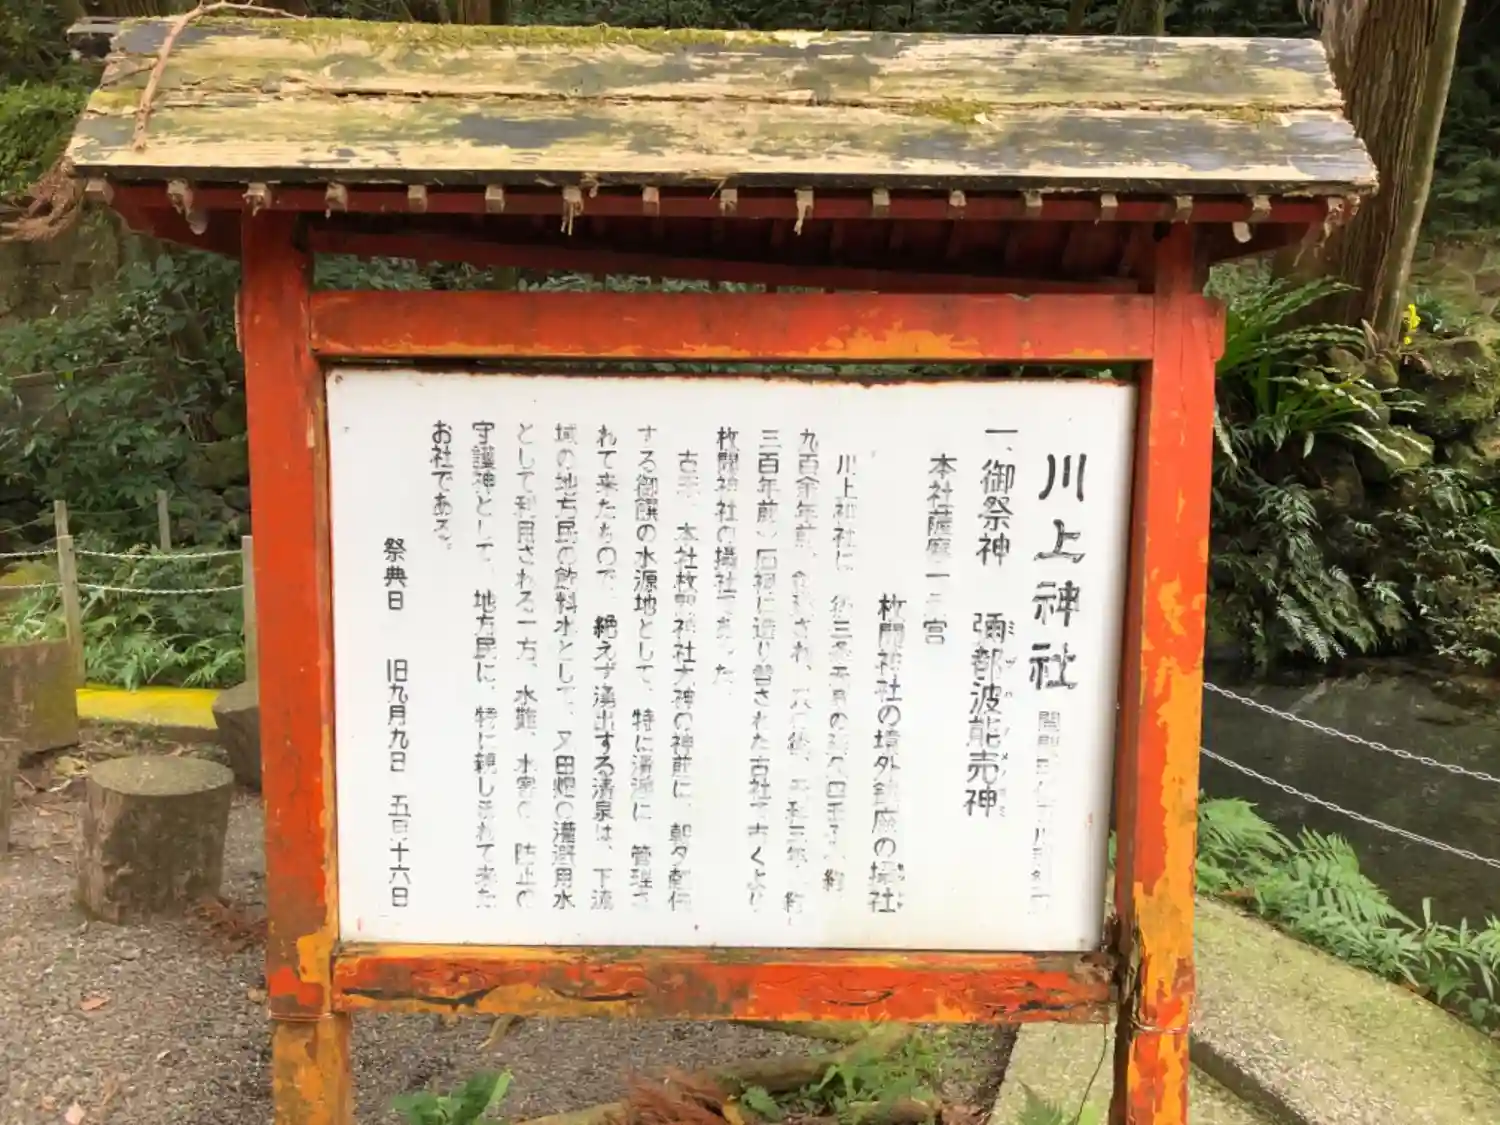 川上神社
一、御祭神 彌都波能売神
ミツハノメノカミ
本社薩摩一ノ宮
枚聞神社の境外鎮座の摂社
川上神社は
九百余年前、され、
三百年前）石祠に造り替された古社で古くより
枚聞神社の摂社であった。
古来、本社枚聞神社大神の神前に、朝夕献供
する御饌の水源地として、特に清浄に、管理さ
れて来たもので、絶えず湧出する清泉は、下流
域の地方民の飲料水として、又田畑の灌漑用水
として利用される一方、水難、水害の、防止の
守護神として、地方民に、特に親しまれて来た
お社である。
祭典日 旧九月九日 五月十六日